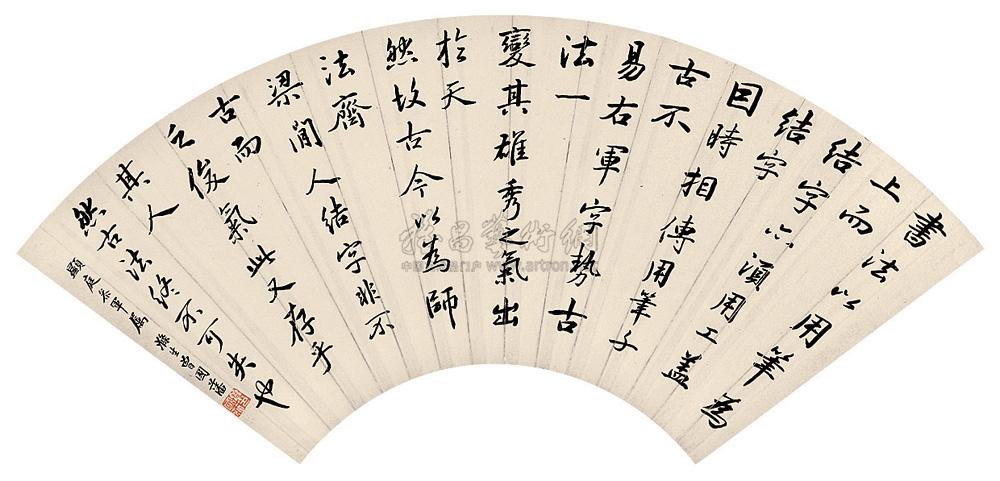 書法以用筆為
上而
結字亦須用工盖
結字
因時相傳用筆千
古不
易右軍字勢古
法一
變其雄秀之氣出
於天
然故古今以為師
法齊
梁間人結字非不
古而
乏俊氣此又存乎
其人
然古法終不可失也
顯庭叅軍屬 滌生曾國藩
雅昌藝術網
www.artron